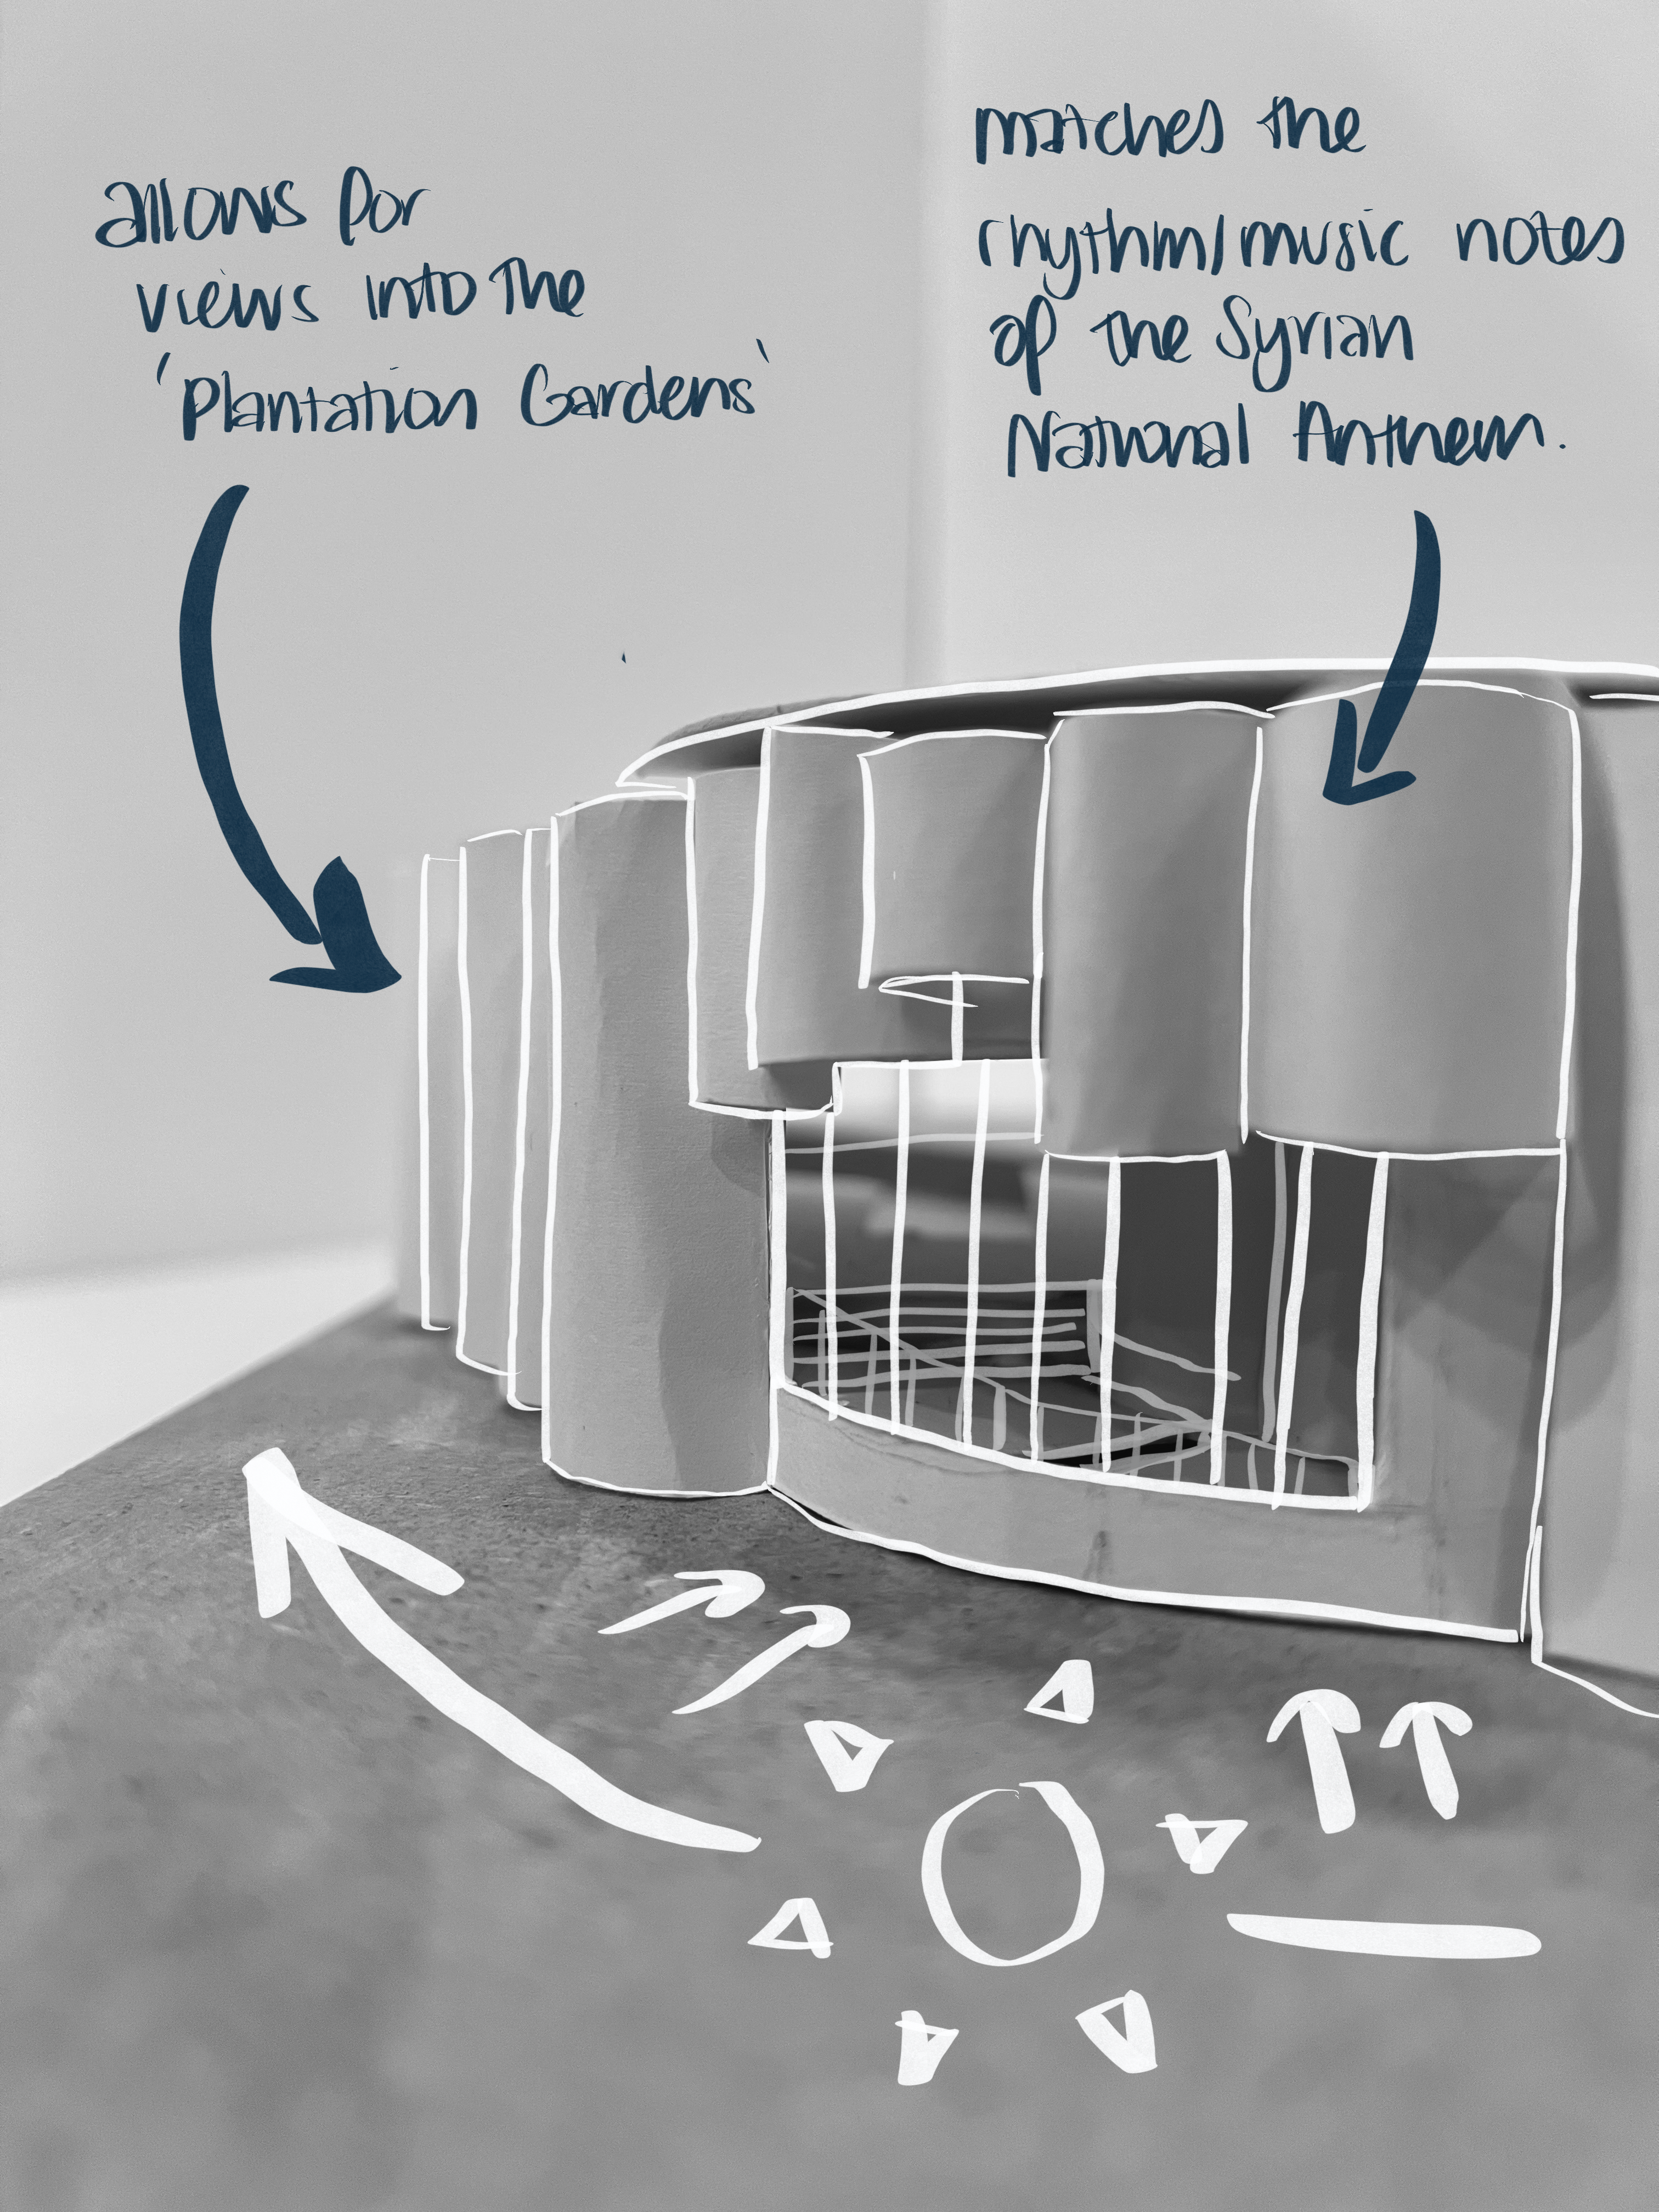 allows for
views into the
'Plantation Gardens'
matches the
rhythm/music notes
of the Syrian
National Anthem.